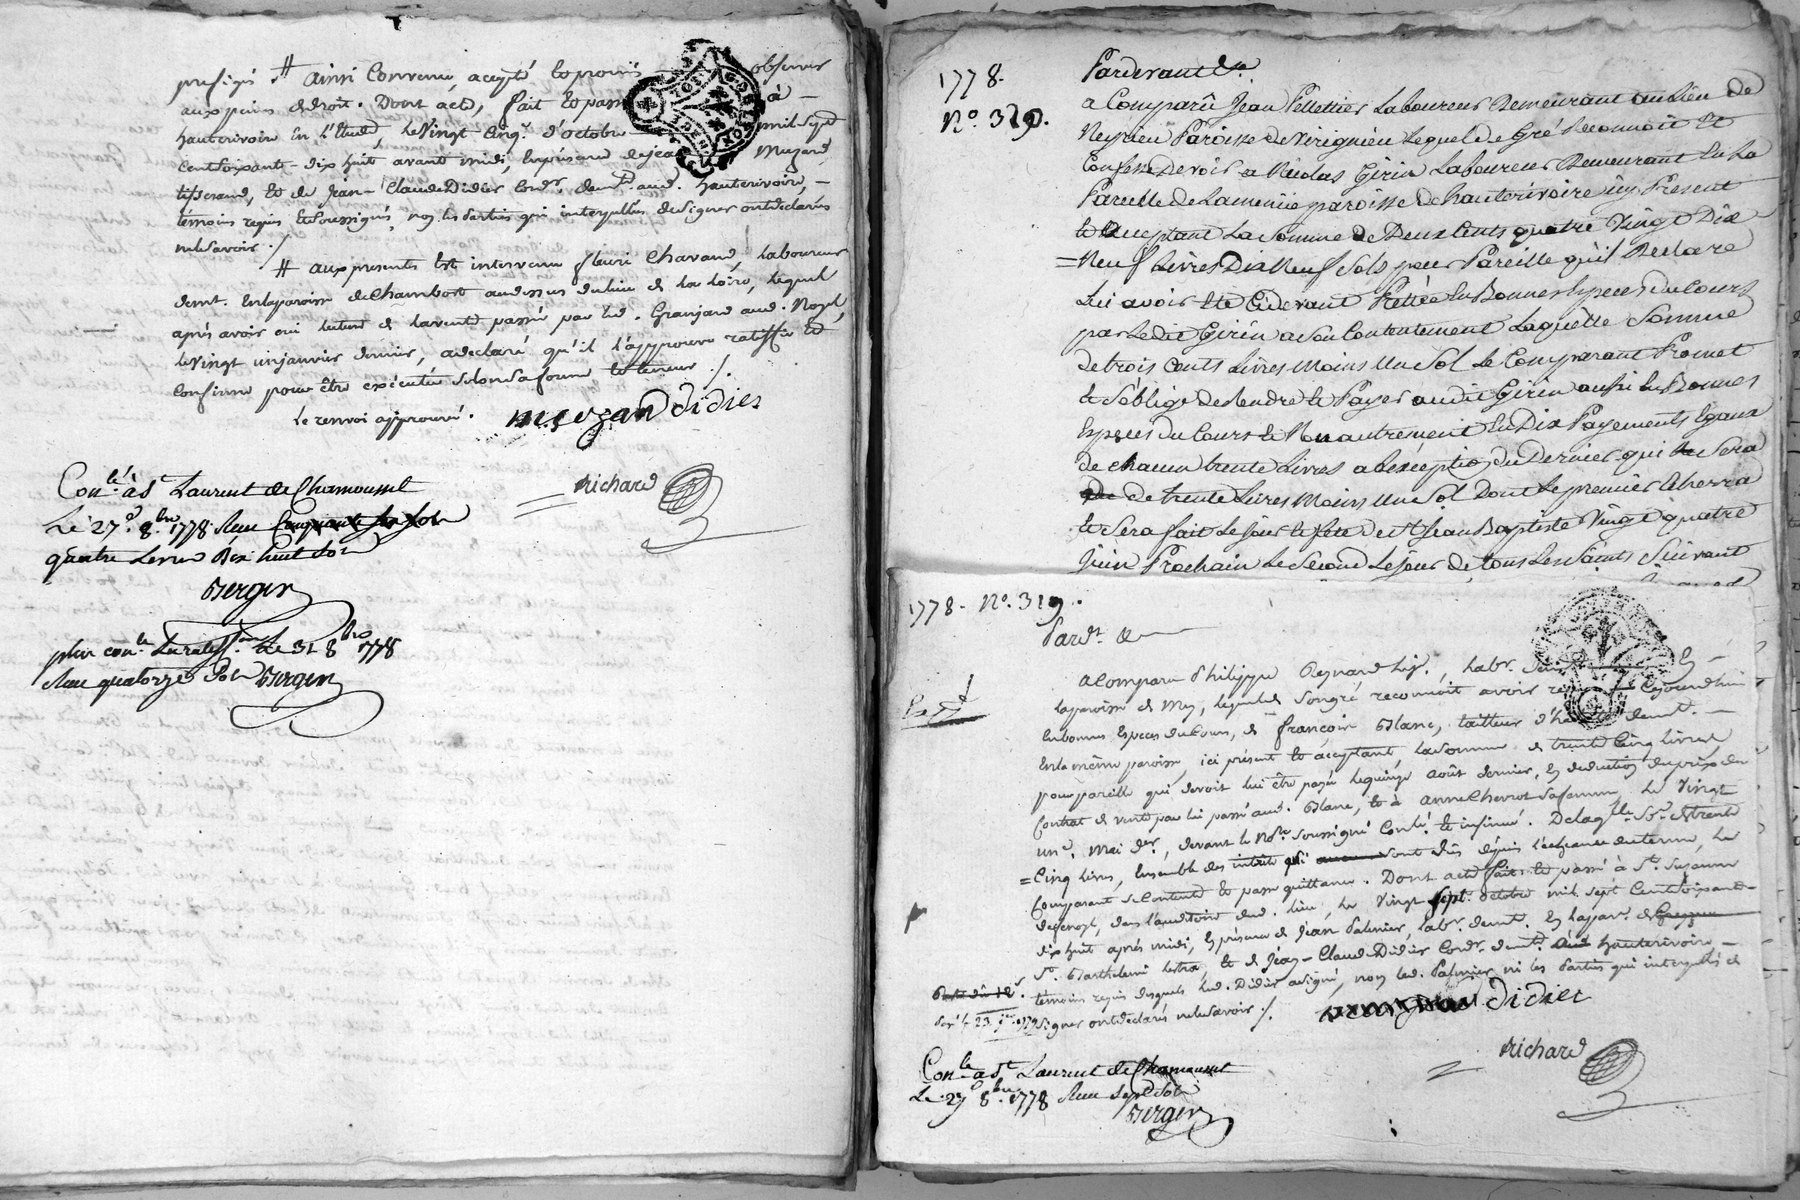 presigé # ainsi Convenu, accepté et promis observer
aux peines de droit. Dont acte, fait et passé à
hauterivoire En l'Etude, Le vingt Cinq d'octobre mil sept
Cent soixante-dix huit avant midi, En présence de jean Muzard
tisserand, Et de Jean-Claude Didier Cordr. demts. aud. hauterivoire,
témoins requis Et soussignés, non les parties qui interpellées de signer ont déclarés
ne le savoir ./.
# aux presentes Est intervenu fleuri Chavand, Laboureur
demt. En la paroisse de Chambost au dessus du lieu de La loire, Lequel
après avoir oui lecture de la vente passée par led. Granjard aud. Noyel,
le vingt un janvier dernier, a declaré qu'il l'approuve ratiffie Et
Confirme pour être exécutée selon sa forme Et teneur ./.
Le renvoi approuvé.
muzan didier
richard
Conlé à St Laurent de Chamousset
Le 27e 8bre 1778 Reçu
quatre Livres Dix huit sols
Berger
plus conlé La ratiffon Le 31 8bre 1778
Reçu quatorze sols Berger
1778.
No. 319.
Pardevant &c.
a Comparû Jean Pellettier Laboureur Demeurant au Lieu de
Neyrieu Paroisse de Virignieu Lequel de Gré Reconnoit Et
Confesse Devoir a Nicolas Girin Laboureur Demeurant En La
Parcelle de Lamenüe paroisse de hauterivoire icy Present
Et acceptant La Somme de Deux Cents quatre Vingt Dix
=Neuf Livres Dix Neuf Sols pour Pareille qu'il Declare
Lui avoir Eté Cidevant Prettée En Bonnes Especes du Cours
par Ledit Girin a Son Contentement Laquelle Somme
de trois Cents Livres Moins Un Sol Le Comparant Promet
Et S'oblige De Rendre Et Payer audit Girin aussi En Bonnes
Especes du Cours Et Non autrement En Dix Payements Egaux
de chacun trente Livres a L'exception du Dernier qui Ne Sera
que de trente Livres Moins Un Sol Dont Le premier Echerra
Et Sera fait Le Jour Et fete de St Jean Baptiste Vingt quatre
Juin Prochain Le Second Le Jour de tous Les Saints Suivant
1778. No. 319.
Pardt. &c
a Comparu Philippe Reynard
La paroisse de Mey, Lequel de Son gré reconnoit avoir reçu Cejourdhui
En bonnes Especes du Cours, de françois Blanc, tailleur d'habits demt.
En la même paroisse, ici présent Et acceptant, La Somme de trente Cinq Livres
pour pareille qui devoit lui être payée le quinze août dernier, En deduction du prix du
Contrat de vente par lui passé aud. Blanc, Et à anne Chervot Sa femme, Le Vingt
un. Mai der., devant le Nore. soussigné Conlé. Et insinué. De laqlle. Se. de trente
=Cinq Livres, Ensemble des intérêts qui sont dus depuis l'echeance du terme, Le
Comparant Se Contente Et passe quittance. Dont acte fait Et passé à Ste. Suzanne
dans l'auditoire dud. Lieu, Le Vingt sept. octobre mil sept Cent soixante-
dix huit après midi, En présence de Jean Palmier, Labr. demt. En la par. de
St. Barthelemi Lestra, Et de Jean-Claude Didier Cordr. demt. hauterivoire,
témoins requis desquels Led. Didier a signé, non led. Palmier ni les Parties qui interpellés de
signer ont déclarés ne le savoir ./.
didier
richard
Conlé a St Laurent de Chamousset
Le 27e 8bre 1778 Reçu sept sols
Berger